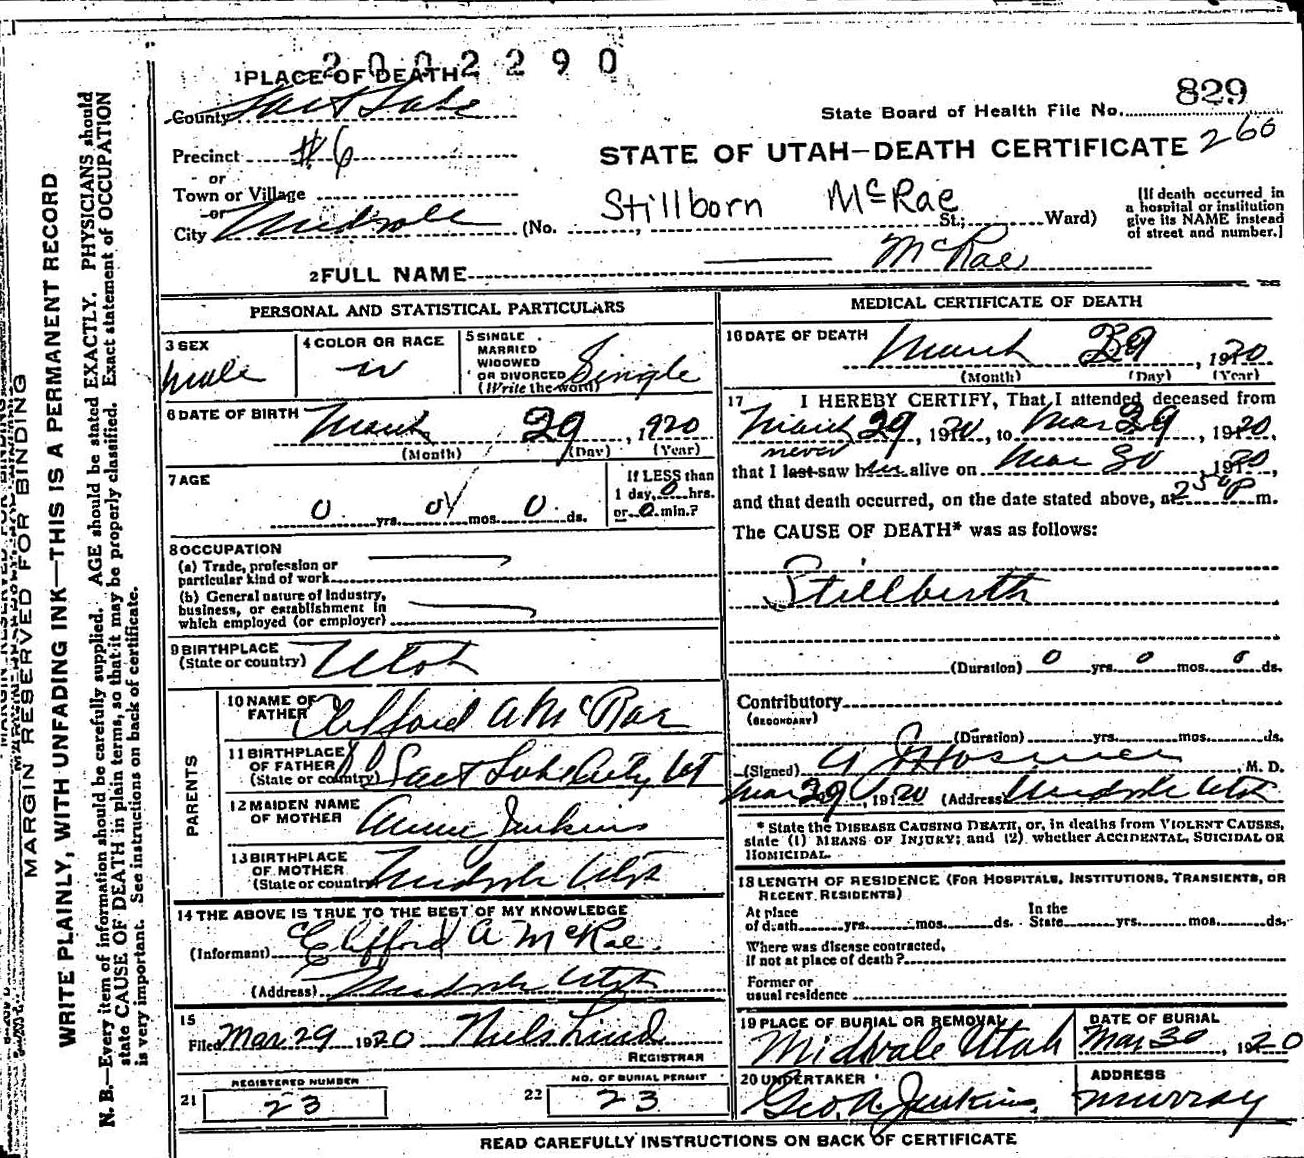 2002290
1 PLACE OF DEATH
829
County Salt Lake
State Board of Health File No.
Precinct #6
STATE OF UTAH—DEATH CERTIFICATE 260
or
Town or Village
or
City Midvale (No. , St.; Ward)
Stillborn McRae
[If death occurred in
a hospital or institution
give its NAME instead
of street and number.]
2 FULL NAME McRae
PERSONAL AND STATISTICAL PARTICULARS
3 SEX
male
4 COLOR OR RACE
w
5 SINGLE
MARRIED
WIDOWED
OR DIVORCED
(Write the word)
Single
6 DATE OF BIRTH
March 29, 1920
(Month) (Day) (Year)
7 AGE
0 yrs. 0 mos. 0 ds.
If LESS than
1 day, 0 hrs.
or 0 min.?
8 OCCUPATION
(a) Trade, profession or
particular kind of work
(b) General nature of industry,
business, or establishment in
which employed (or employer)
9 BIRTHPLACE
(State or country) Utah
PARENTS
10 NAME OF
FATHER Clifford A McRae
11 BIRTHPLACE
OF FATHER
(State or country) Salt Lake City Ut
12 MAIDEN NAME
OF MOTHER Annie Jenkins
13 BIRTHPLACE
OF MOTHER
(State or country) Midvale Utah
14 THE ABOVE IS TRUE TO THE BEST OF MY KNOWLEDGE
(Informant) Clifford A McRae
(Address) Midvale Utah
15
Filed Mar 29 1920 Niels Lind
REGISTRAR
21 REGISTERED NUMBER
23
22 NO. OF BURIAL PERMIT
23
MEDICAL CERTIFICATE OF DEATH
16 DATE OF DEATH
March 29, 1920
(Month) (Day) (Year)
17 I HEREBY CERTIFY, That I attended deceased from
March 29, 1920, to Mar 29, 1920,
never
that I last saw him alive on Mar 30, 1920,
and that death occurred, on the date stated above, at 2 50 P m.
The CAUSE OF DEATH* was as follows:
Stillbirth
(Duration) 0 yrs. 0 mos. 0 ds.
Contributory
(SECONDARY)
(Duration) yrs. mos. ds.
(Signed) A J Hosmer M. D.
Mar 29, 1920 (Address) Midvale Utah
* State the DISEASE CAUSING DEATH, or, in deaths from VIOLENT CAUSES,
state (1) MEANS OF INJURY; and (2) whether ACCIDENTAL, SUICIDAL OR
HOMICIDAL.
18 LENGTH OF RESIDENCE (FOR HOSPITALS, INSTITUTIONS, TRANSIENTS, OR
RECENT RESIDENTS)
At place
of death yrs. mos. ds.
In the
State yrs. mos. ds.
Where was disease contracted,
if not at place of death?
Former or
usual residence
19 PLACE OF BURIAL OR REMOVAL
Midvale Utah
DATE OF BURIAL
Mar 30, 1920
20 UNDERTAKER
Geo. A. Jenkins
ADDRESS
Murray
READ CAREFULLY INSTRUCTIONS ON BACK OF CERTIFICATE
MARGIN RESERVED FOR BINDING
WRITE PLAINLY, WITH UNFADING INK—THIS IS A PERMANENT RECORD
N. B.—Every item of information should be carefully supplied. AGE should be stated EXACTLY. PHYSICIANS should
state CAUSE OF DEATH in plain terms, so that it may be properly classified. Exact statement of OCCUPATION
is very important. See instructions on back of certificate.